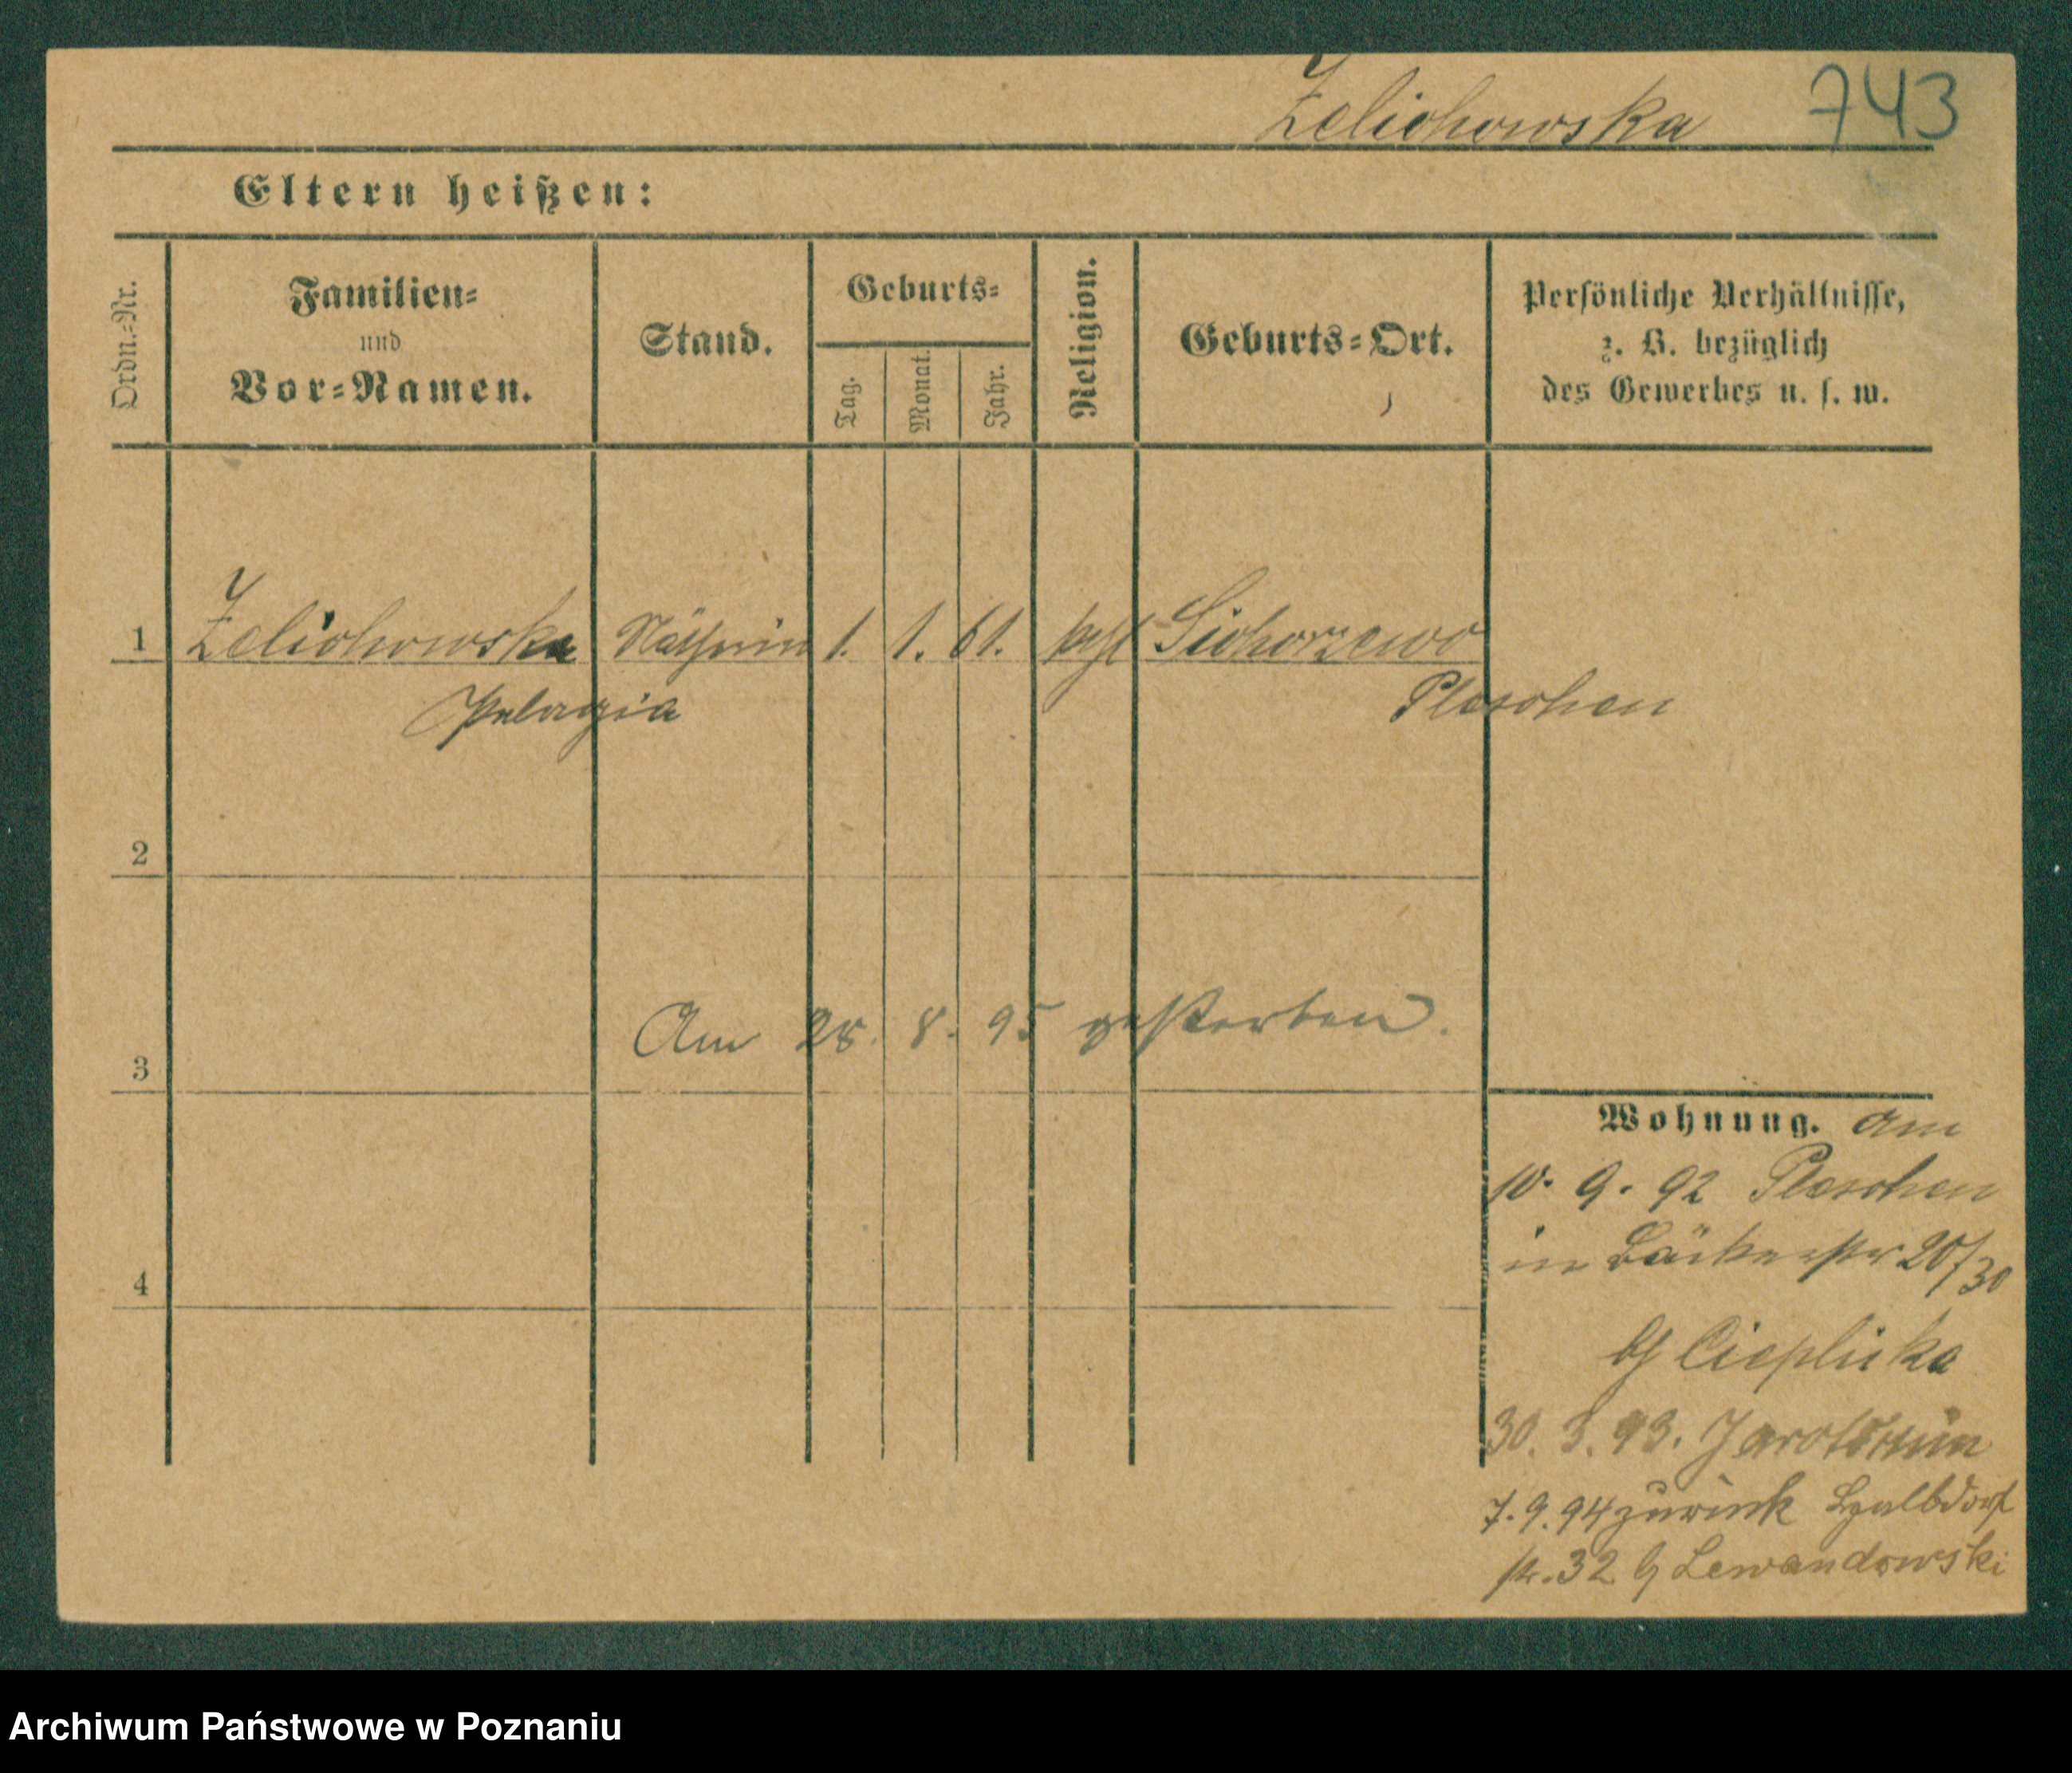 Żelichowska 743
Eltern heißen:
Ordn.=Nr.
Familien=
und
Vor=Namen.
Stand.
Geburts=
Tag.
Monat.
Jahr.
Religion.
Geburts=Ort.
Persönliche Verhältnisse,
z. B. bezüglich
des Gewerbes u. s. w.
1 Żelichowska Nätherin 1. 1. 61. kath Sichorzewo
Pelagia Pleschen
2
Am 28. 8. 95 gestorben.
3
Wohnung. Am
10. 9. 92 Pleschen
in Bäckerstr 20/30
b/ Cieplicka
30. 3. 93. Jarotschin
4
7. 9. 94 zurück Halbdorf
str. 32 b/ Lewandowski
Archiwum Państwowe w Poznaniu